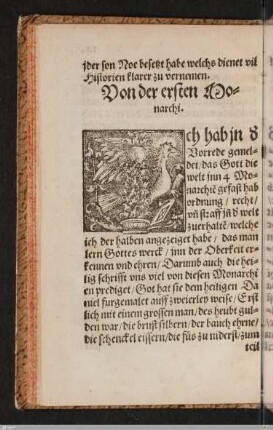 jder son Noe besetzt habe welchs dienet vil
Historien klarer zu vernemen.
Von der ersten Mo-
narchi.
Ich hab jn d
Vorrede gemel-
det/das Gott die
welt inn 4 Mo-
narchiē gefast hab
ordnung/ recht/
vñ straff jn d welt
zuerhaltē/welche
ich der halben angezeiget habe/ das man
lern Gottes werck/ inn der Oberkeit er-
kennen vnd ehren/ Darumb auch die hei-
lig schrifft vns viel von diesen Monarchi
en prediget/ Got hat sie dem heiligen Da
niel furgemalet auff zweierley weise/ Erst
lich mit einem grossen man/des heubt gul-
den war/die brust silbern/der bauch ehrne/
die schenckel eissern/die füs zu niderst/zum
teil